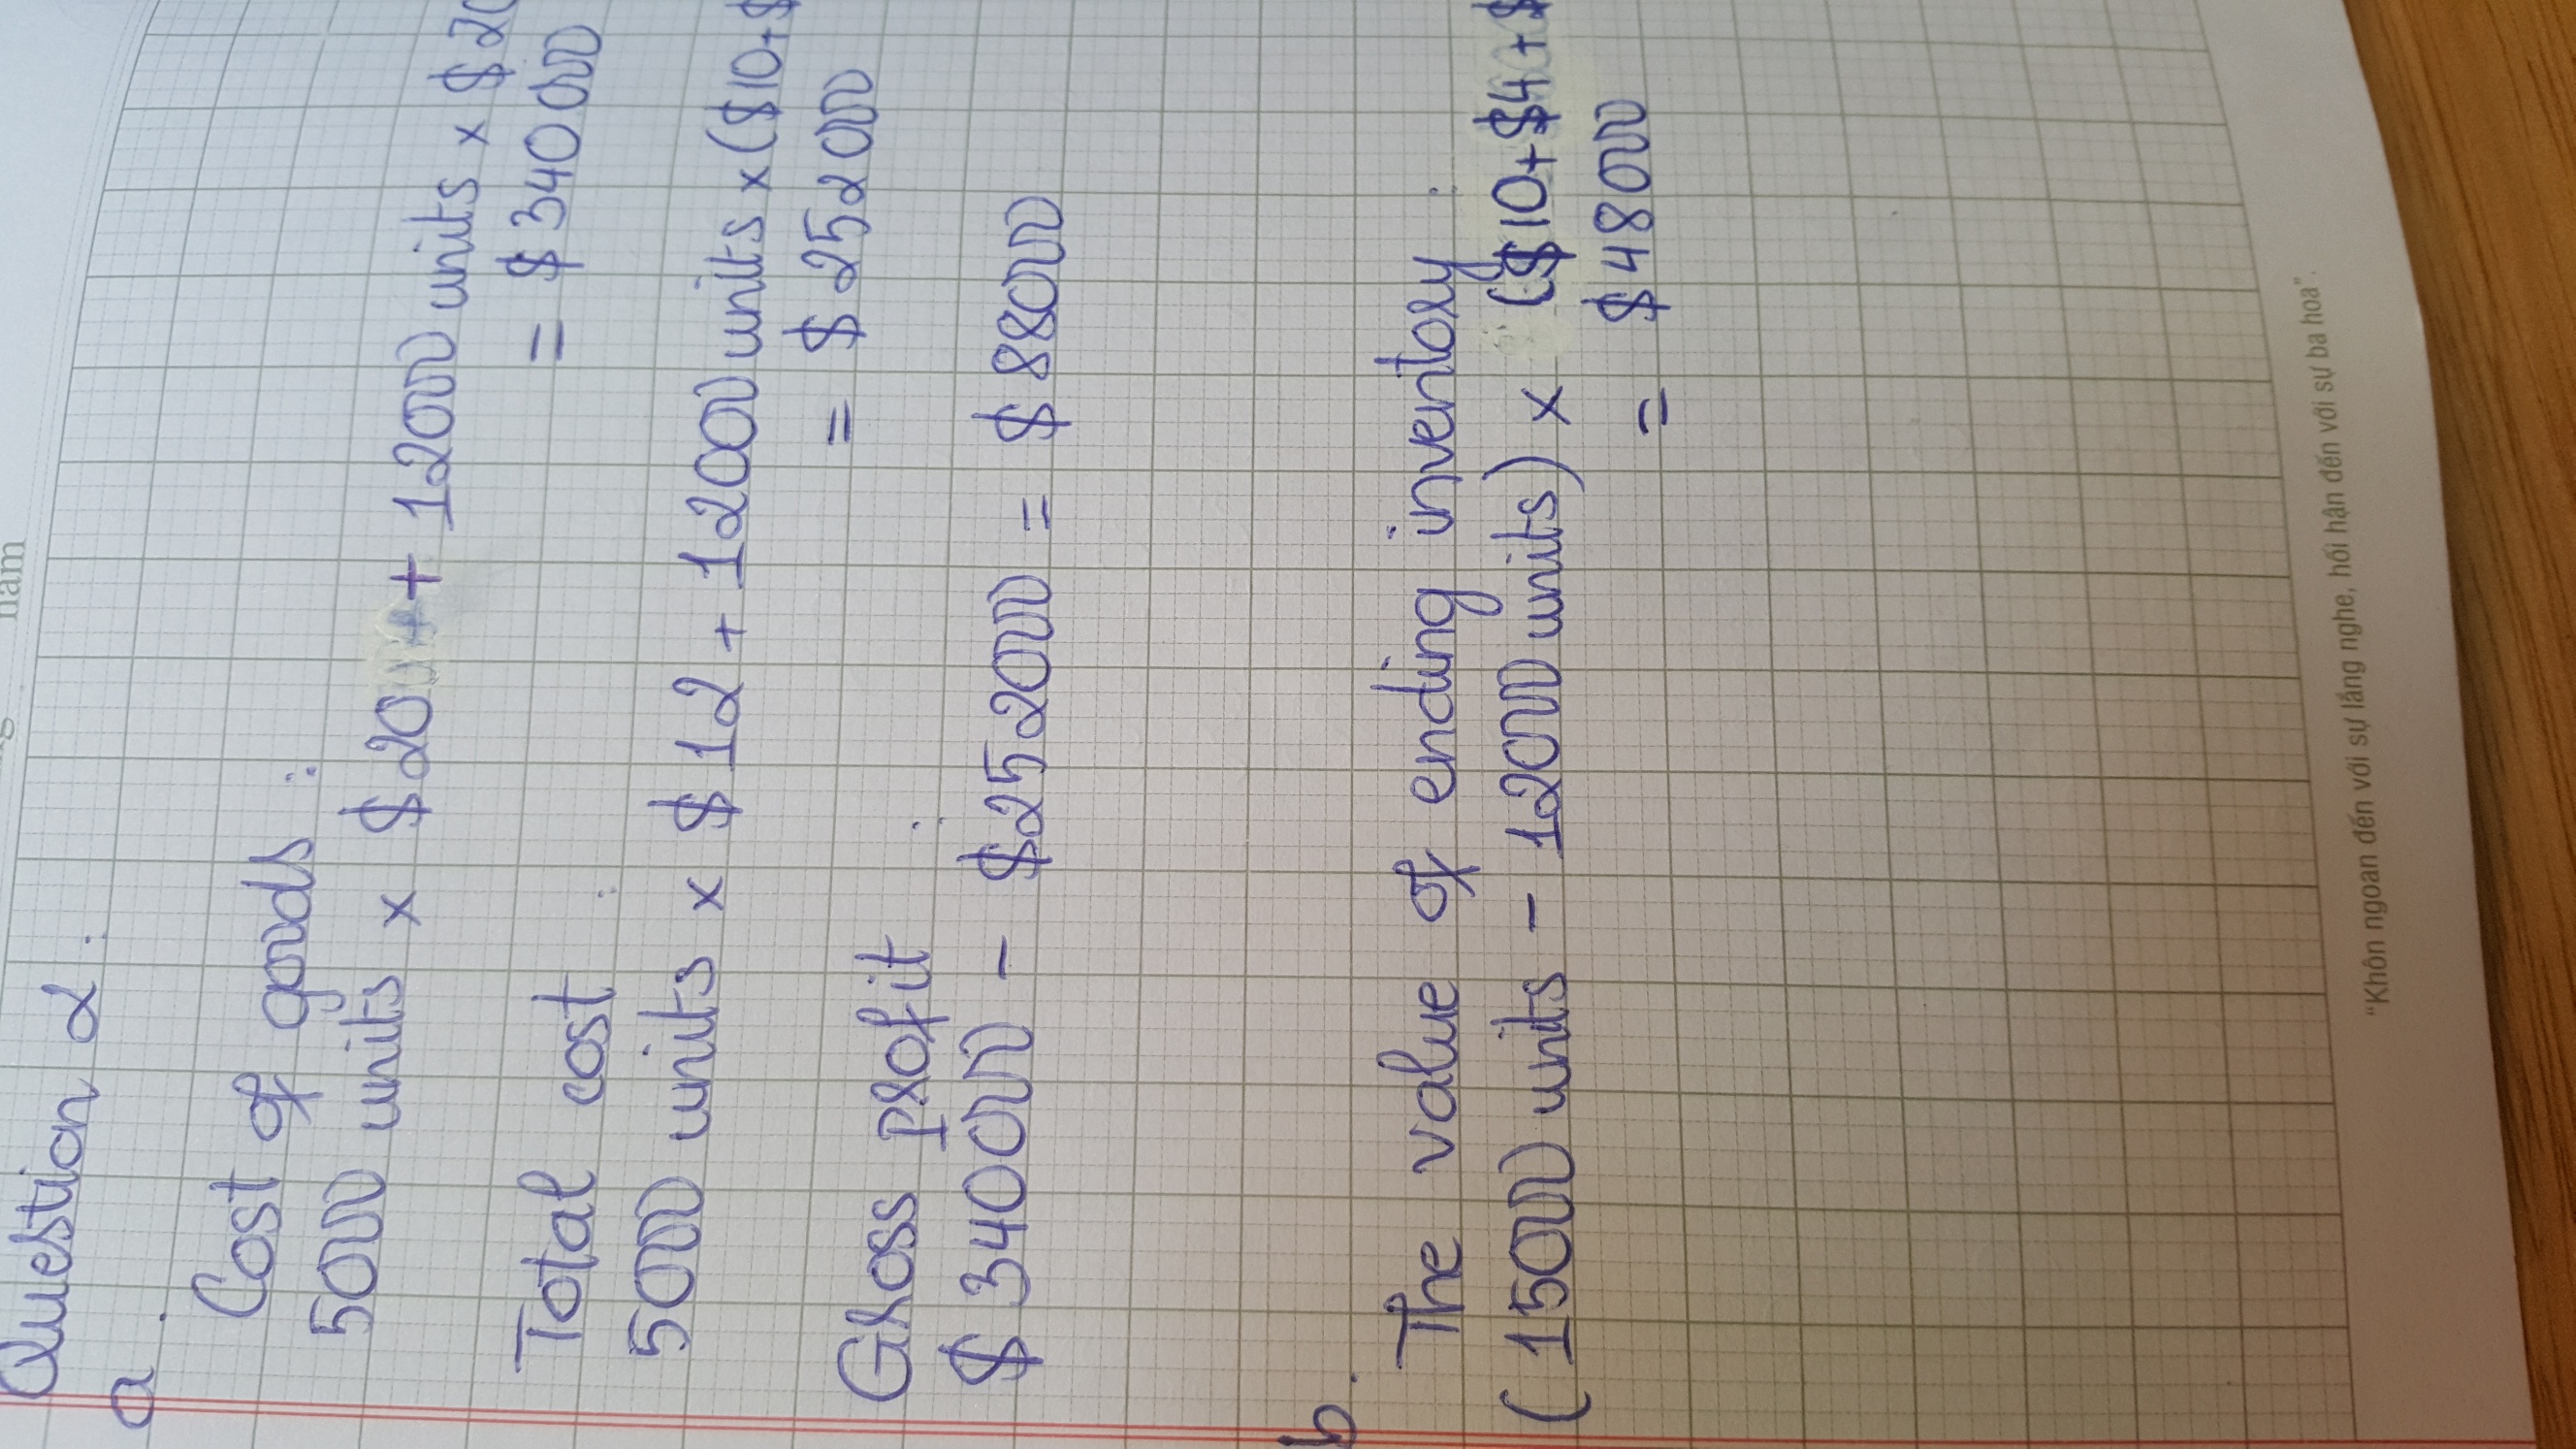 năm
Question 2:
a.
Cost of goods:
5000 units x $20 + 12000 units x $20
= $340000
Total cost:
5000 units x $12 + 12000 units x ($10+$
= $252000
Gross profit:
$340000 - $252000 = $88000
b. The value of ending inventory:
(15000 units - 12000 units) x ($10+$4+$
= $48000
"Khôn ngoan đến với sự lắng nghe, hối hận đến với sự ba hoa".